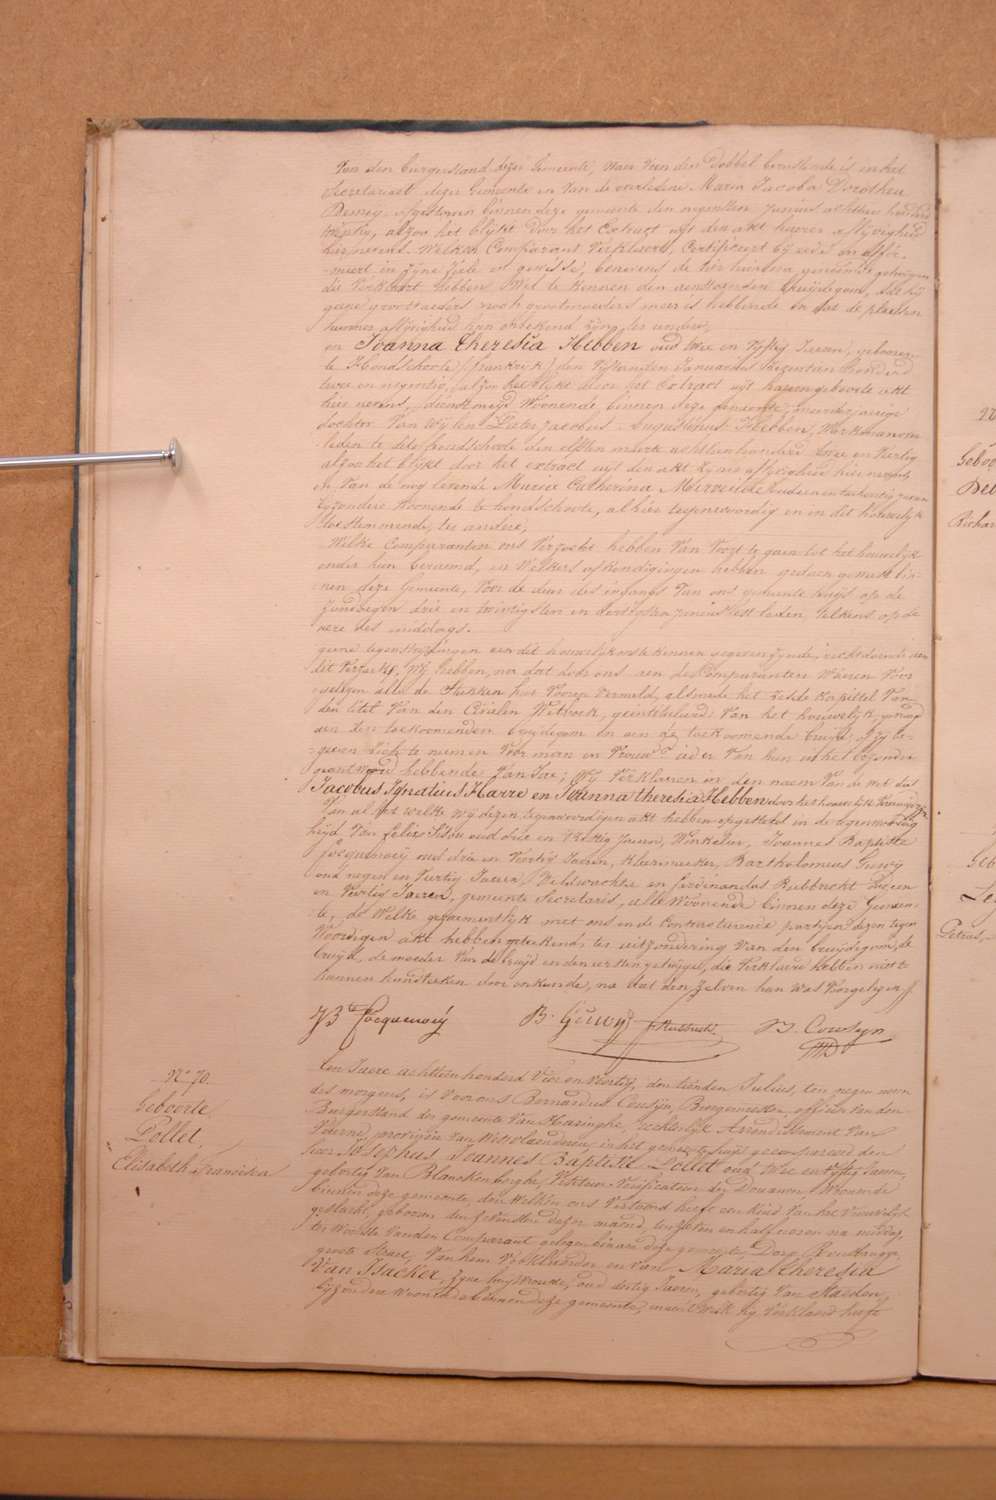 Van den burgerstand dezer Gemeente, waer van den dobbel berustende is in het
Secretariaet dezer Gemeente en van de overledene Maria Jacoba Dorothea
Demey afgestorven binnen deze gemeente den negensten Junius achttien honderd
alzoo het blykt door het extract uyt den akt harer aflyvigheid
hiernevens. Welken Comparant Certificeert by eede en affir-
-meert in zyne ziele en gewisse, benevens de hier hierna genoemde getuigen
die verklaert hebben Wel te kennen den aenkomenden bruidegom, dat hy
geene grootvaders noch grootmoeders meer is hebbende en dat de plaetsen
hunner aflyvigheid hun onbekend zyn, ter eendere;
en Joanna Theresia Hebben oud twee en vyftig Jaeren, geboren
te Hondschoote (frankryk) den Januarius Seventien honderd
twee en negentig, alzoo het blykt door het extract uyt haeren geboorte akt
hier nevens, dienstmeyd Woonende binnen deze gemeente, meerderjaerige
dochter Van wylen Pieter Jacobus Augustinus Hebben, Werkman over-
-leden te dito hondschoote den elfsten maerte achttien honderd twee en veertig
alzoo het blykt door het extract uyt den akt zyner aflyvigheid hiernevens
en Van de nog levende Maria Catherina Merveille oud een en tachentig jaeren
byzondere Woonende te hondschoote, alhier tegenwoordig en in dit houwelyk
toestemmende, ter andere;
Welke Comparanten ons Verzocht hebben Van Voort te gaen tot het houwelyk
onder hun beraemd, en Welkers afkondigingen hebben gedaen geweest bin-
nen deze Gemeente, Voor de deur des ingangs Van ons gemeente huys op de
Zondagen drie en twintigsten en dertigsten Junius lestleden, telkens op de
uere des middags.
geene tegenstrydingen aen dit houwelyk ons te kennen gegeven zynde, recht doende aen
dit verzoek, Wy hebben, na dat door ons aen de Comparanten Waeren Voor
-gelezen alle de stukken hier Voorn Vermeld, alsmede het zesde kapittel Van
den titel Van den Civilen Wetboek, geintituleerd: Van het houwelyk, gevraegd
aen den toekomenden bruydegom en aen de toekomende bruyd: of zy be-
-geeren zich te nemen Voor man en Vrouw? ider Van hun in het byzonder
geantwoord hebbende Van Jae; Wy Verklaeren in den naem Van de wet dat
Jacobus Ignatius Harre en Joanna theresia Hebben door het houwelyk Vereenigd zyn
Van al het welke Wy dezen tegenwoordigen akt hebben opgesteld in de tegenwoordig-
heyd Van felix oud drie en Jaeren, Winkelier, Joannes Baptiste
Jocquemeij oud drie en Veertig Jaeren, kleermaeker, Bartholomeus Guwy
oud negen en Veertig Jaeren Veldwachter en ferdinandus Rubbrecht oud een
en Veertig Jaeren, gemeente Secretaris, alle Woonende binnen deze Gemeen-
te, de Welke gezaementlyk met ons en de Contracterende partyen dezen tegen
Woordigen akt hebben geteekend; ter uitzondering Van den bruydegom, de
bruyd, de moeder Van de bruyd en den eersten getuigen, die Verklaerd hebben niet te
kunnen handteeken door onkunde, na dat den zelven hun Was Voorgelezen
JBte Jocquemeij B. Guwy F Rubbrecht B. Cousyn
N° 70.
Geboorte
Pollet
Elisabeth Francisca
Ten Jaere achttien honderd Vier en Veertig, den tienden Julius, ten negen uren
des morgens, is Voor ons Bernardus Cousyn, Burgemeester, officier Van den
Burgerstand der gemeente Van Haringhe, rechterlyk Arrondissement Van
Veurne, provincie Van Westvlaenderen, in het gemeente huys gecompareerd den
heer Josephus Joannes Baptiste Pollet oud twee en vyftig Jaeren,
geboortig Van Blanckenberghe, Visiteur-Verificateur der Douanen, Woonende
binnen deze gemeente, den Welken ons Vertoond heeft een kind Van het Vrouwelyk
geslacht, geboren den sevensten dezer maend, ten zeven en half uren na middag,
ter Woonste Van den Comparant gelegen binnen deze gemeente, Dorp Rousbrugge,
groote Straet, Van hem Verklaerder en Van Maria Theresia
Van Isacker, zyne huysVrouwe, oud dertig Jaeren, gebortig Van Staeden,
byzondere Woonende binnen deze gemeente, en aen Welk hy Verklaerd heeft